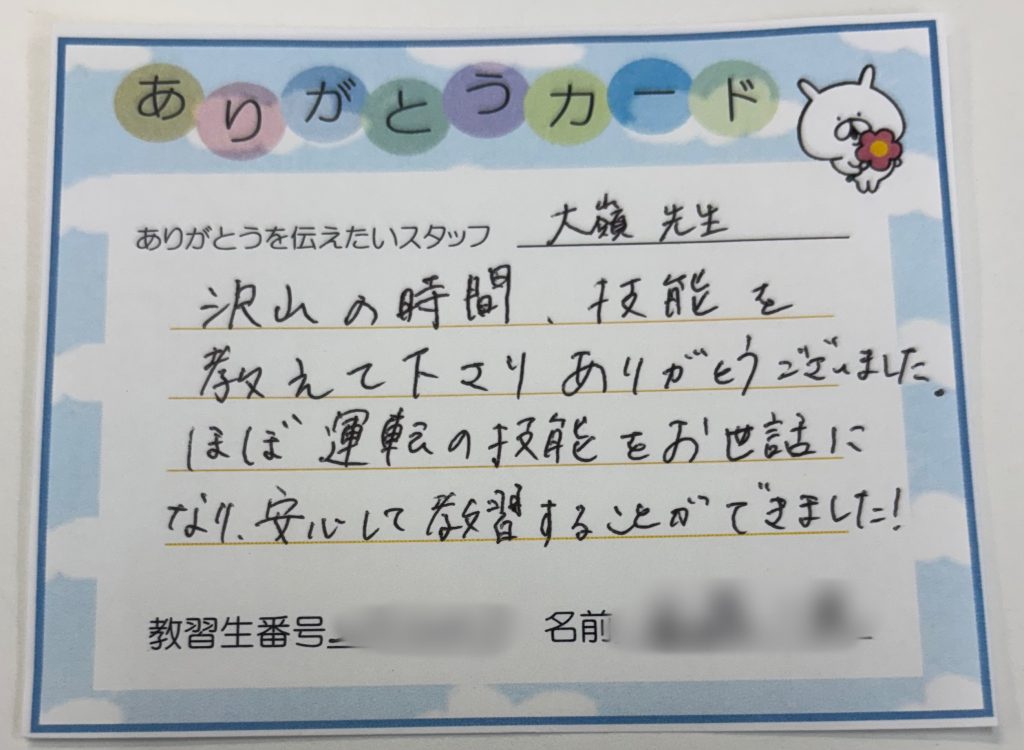 ありがとうカード
ありがとうを伝えたいスタッフ 大嶺 先生
沢山の時間、技能を
教えて下さりありがとうございました。
ほぼ運転の技能をお世話に
なり、安心して教習することができました!
教習生番号 名前